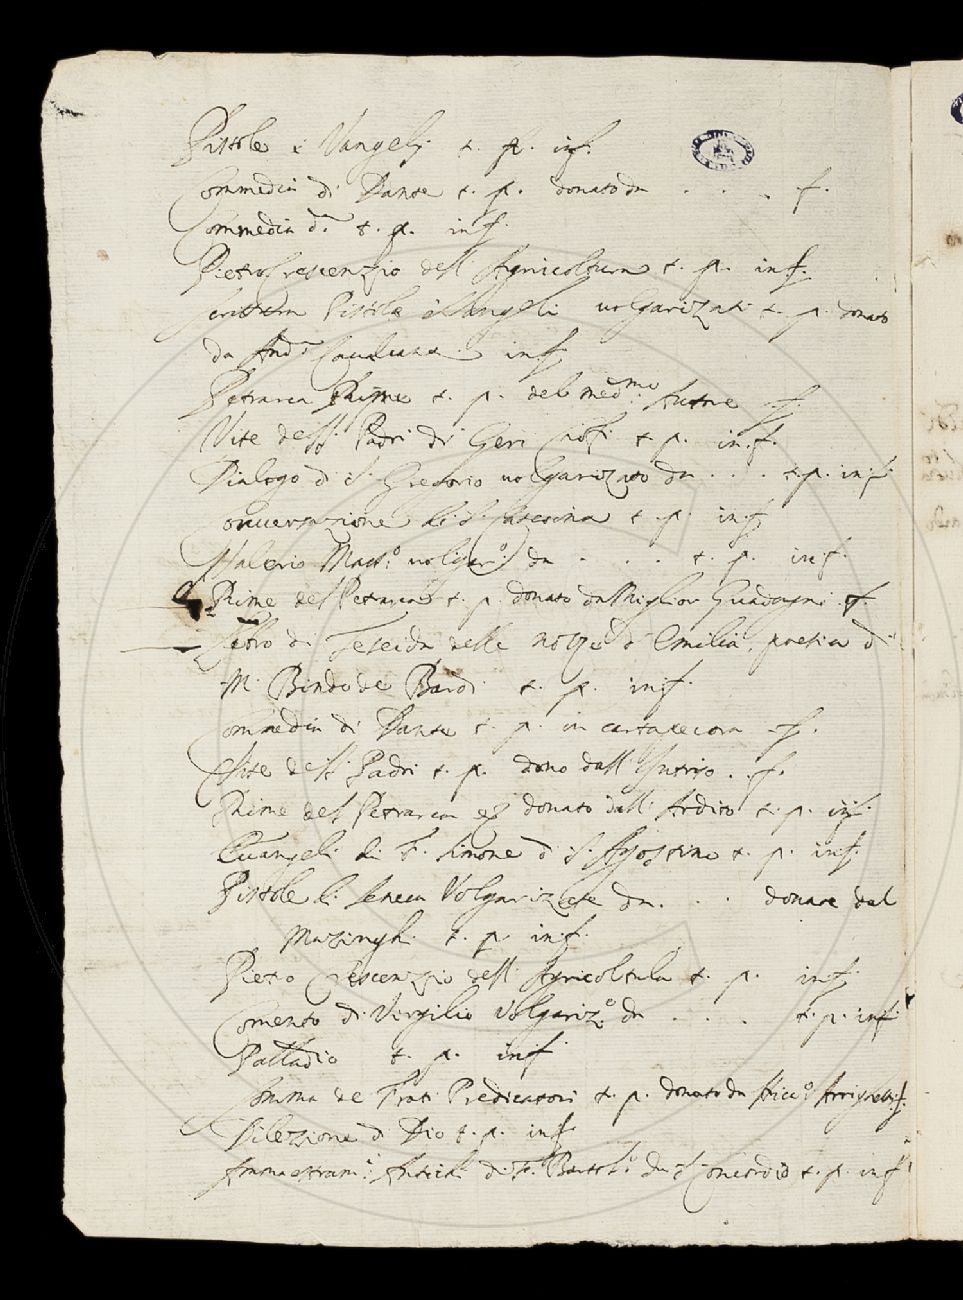 Pistole e Vangelj t. p. inf.
Commedia di Dante t. p. donato da . . . f.
Commedia d.ª t. p. inf.
Pietro Crescenzio dell'Agricoltura t. p. inf.
Pistole e Vangeli uolgarizati t. p. donato
da And.ª Caualcanti inf.
Petrarca Rime t. p. del med.mo f.
Vite de SS. Padri di Geri t. p. in f.
Dialogo di S. Gregorio uolgarizato da . . . t. p. in f
Conuersazione di S. t. p. in f
Valerio Mass.º uolgar.º da . . . t. p. in f.
Rime del Petrarca t. p. donato da Miglior Guadagni f.
Libro di Teseida delle nozze d'Emilia, poesia di
M. Bindo de Bardi t. p. in f.
Commedia di Dante t. p. in cartapecora f.
Vite de SS. Padri t. p. dono dall' . . f.
Rime del Petrarca donato dall'Ardito t. p. inf.
Euangeli di F. Simone d. S. Agostino t. p. inf.
Pistole di Seneca Volgarizate da . . . donate dal
Mazinghi t. p. in f.
Pietro Crescenzio dell'Agricoltula t. p. inf.
Comento di Vergilio Volgariz.º da . . . t. p. inf
Palladio t. p. inf
Somma de Frati Predicatori t. p. donato da Arrighetti f.
Dilezione d Dio t. p. inf.
Ammaestram.ti Antichi di F. Bartol.º da S. Concordio t. p. inf